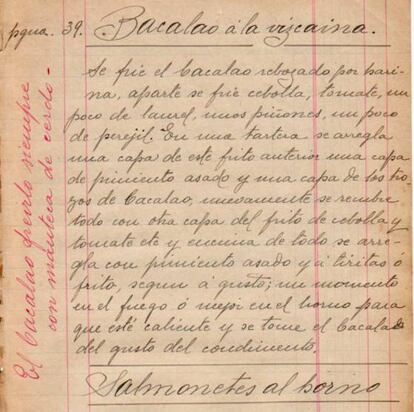 pgna. 39. Bacalao á la vizcaina.
Se frie el bacalao rebozado por hari
na, aparte se frie cebolla, tomate, un
poco de laurel, unos piñones, un poco
de perejil. En una tartera se arregla
una capa de este frito anterior una capa
de pimiento asado y una capa de los tro
zos de bacalao, nuevamente se recubre
todo con otra capa del frito de cebolla y
tomate etc y encima de todo se arre
gla con pimiento asado y á tiritas ó
frito, segun á gusto; un momento
en el fuego ó mejor en el horno para
que esté caliente y se tome el bacalao
del gusto del condimento.
Salmonetes al horno
El bacalao freirlo siempre
con manteca de cerdo -